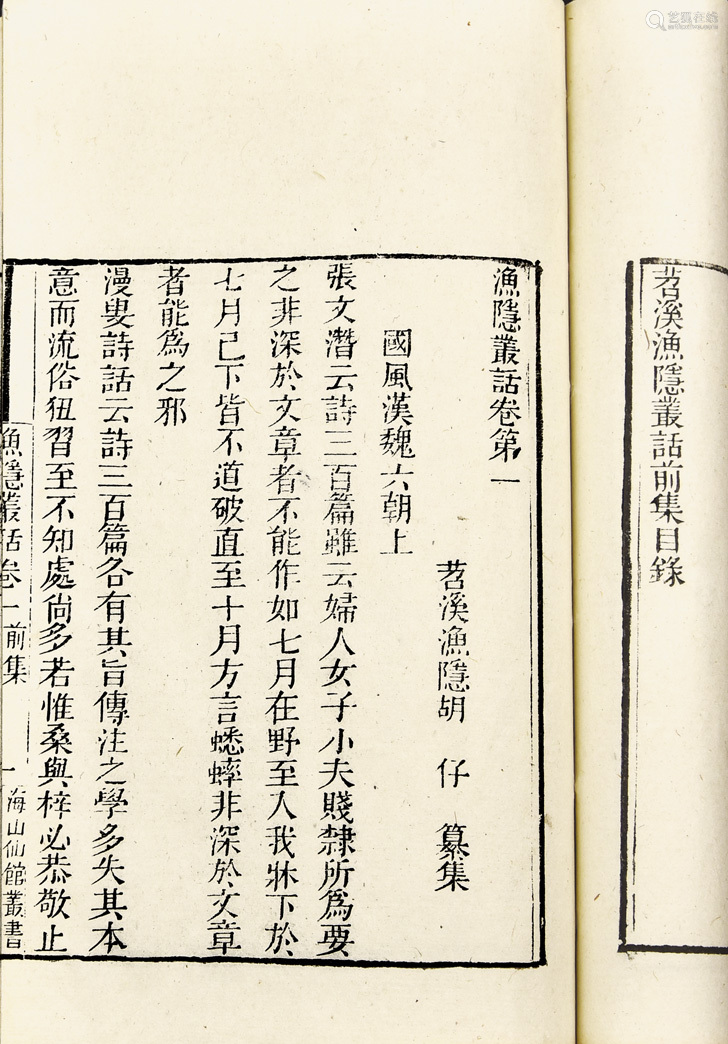 苕溪漁隱叢話前集目錄
漁隱叢話卷第一
苕溪漁隱胡　仔　纂集
國風漢魏六朝上
張文潛云詩三百篇雖云婦人女子小夫賤隸所爲要
之非深於文章者不能作如七月在野至入我牀下於
七月已下皆不道破直至十月方言蟋蟀非深於文章
者能爲之邪
漫叟詩話云詩三百篇各有其旨傳注之學多失其本
意而流俗狃習至不知處尚多若惟桑與梓必恭敬止
漁隱叢話卷一前集　一　海山仙館叢書